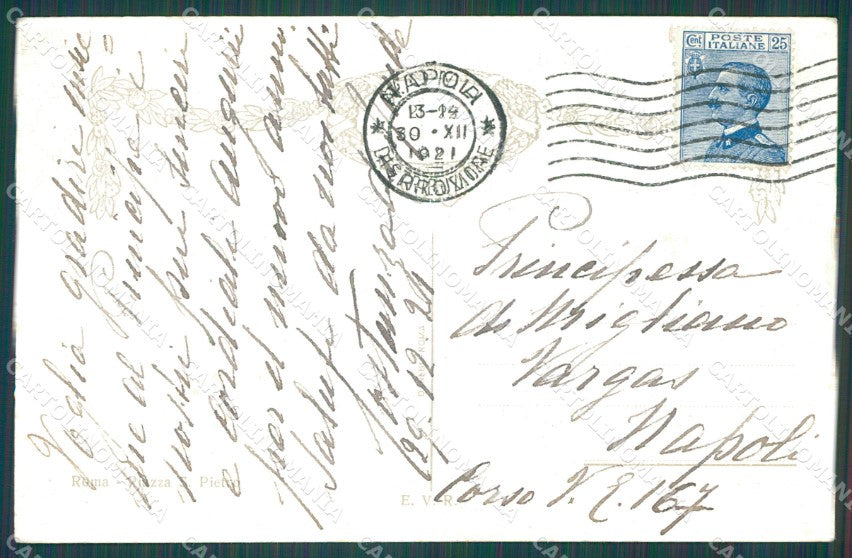 Voglia gradire insieme
al principe i
nostri più sinceri
e cordiali auguri
per il nuovo anno.
Saluti da noi tutti
29.12.21
NAPOLI
13-14
30 · XII
1921
FERROVIA
Cent POSTE ITALIANE 25
Principessa
di Migliano
Vargas
Napoli
Corso V. E. 167
Roma - Piazza S. Pietro
E. V. R.
CARTOLINOMANIA